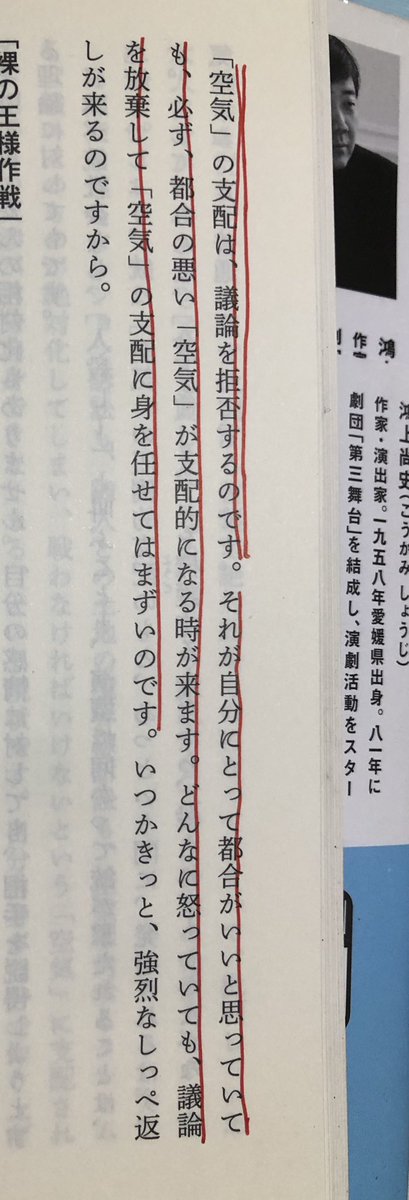 鴻上尚史(こうがみ しょうじ)
作家・演出家。一九五八年愛媛県出身。八一年に
劇団「第三舞台」を結成し、演劇活動をスター
鴻
「空気」の支配は、議論を拒否するのです。それが自分にとって都合がいいと思っていて
も、必ず、都合の悪い「空気」が支配的になる時が来ます。どんなに怒っていても、議論
を放棄して「空気」の支配に身を任せてはまずいのです。いつかきっと、強烈なしっぺ返
しが来るのですから。
「裸の王様作戦」